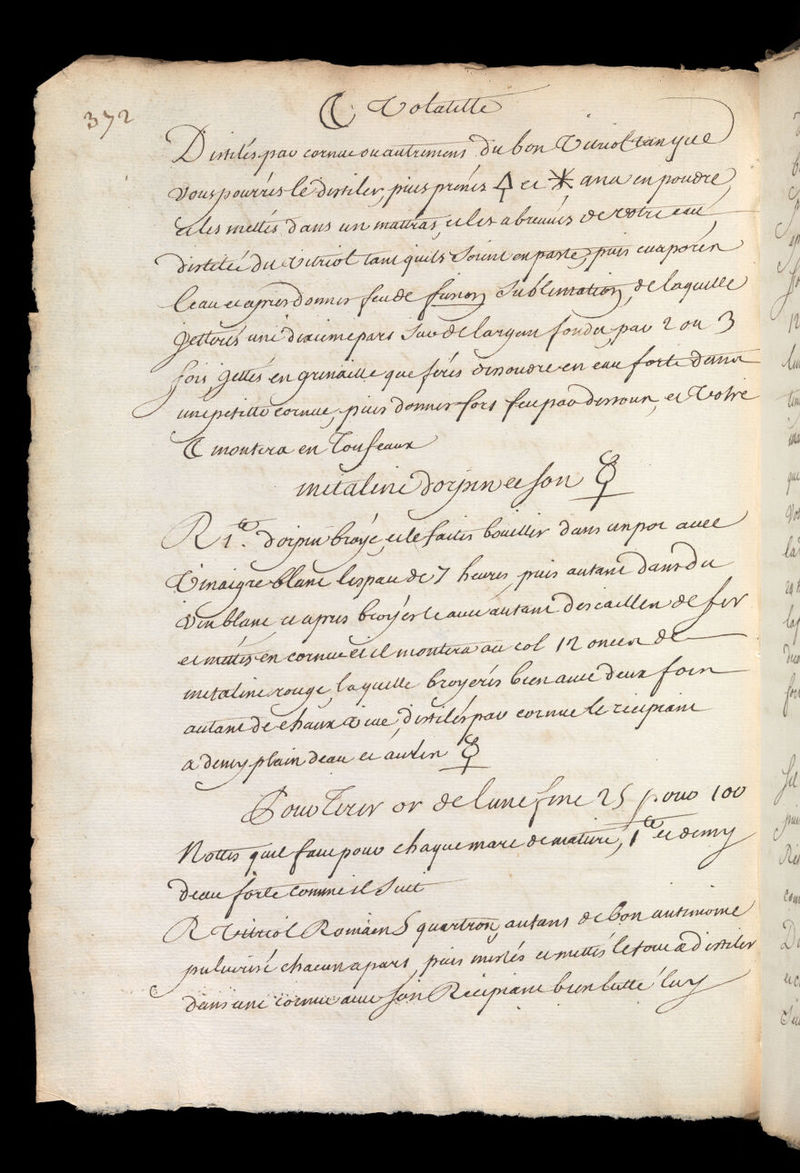 372
☾ Volatille
Distilés par cornue ou autrement du bon Vitriol tan que
vous pourrés le distiler, puis prenés 🜍 et ✶ ana en poudre,
et les mettés dans un mattras, et les abreuvés de votre eau
distilée du Vitriol tant quils soient en paste, puis evaporés
leau et apres donner feu de fusion, Sublimation, de laquelle
jetterés une dixieme part Sur de largan fondu par 2 ou 3
fois, jettés en grenaille que ferés disoudre en eau forte dans
une petitte cornue, puis donner fort feu par dessour, et Votre
☾ montera en
metaline dorpin et son ☿
R 1 ℔. dorpin broyé, et le faites bouillir dans un pot avec
Vinaigre blanc lespau de 7 heures, puis autant dans du
Vin blanc et apres broyés le avec autant descailler de fer
et mettés en cornue et il montera au col 12 oncer de
metaline rouge, laquelle broyerés bien avec deux foin
autant de chaux vive, distilés par cornue le recipiant
a demy plain deau et aurés ☿
Pour Tirer or de lune fine 25 pour 100
Nottés quil faut pour chaque marc de matiere, 1 ℔ et demy
deau forte comme il Suit
R Vitriol Romain 5 quartron, autans de bon antimoine
pulverisé chacun apart, puis meslés et mettés le tout a distiler
dans une cornue avec son Recipiant bien lutté luy